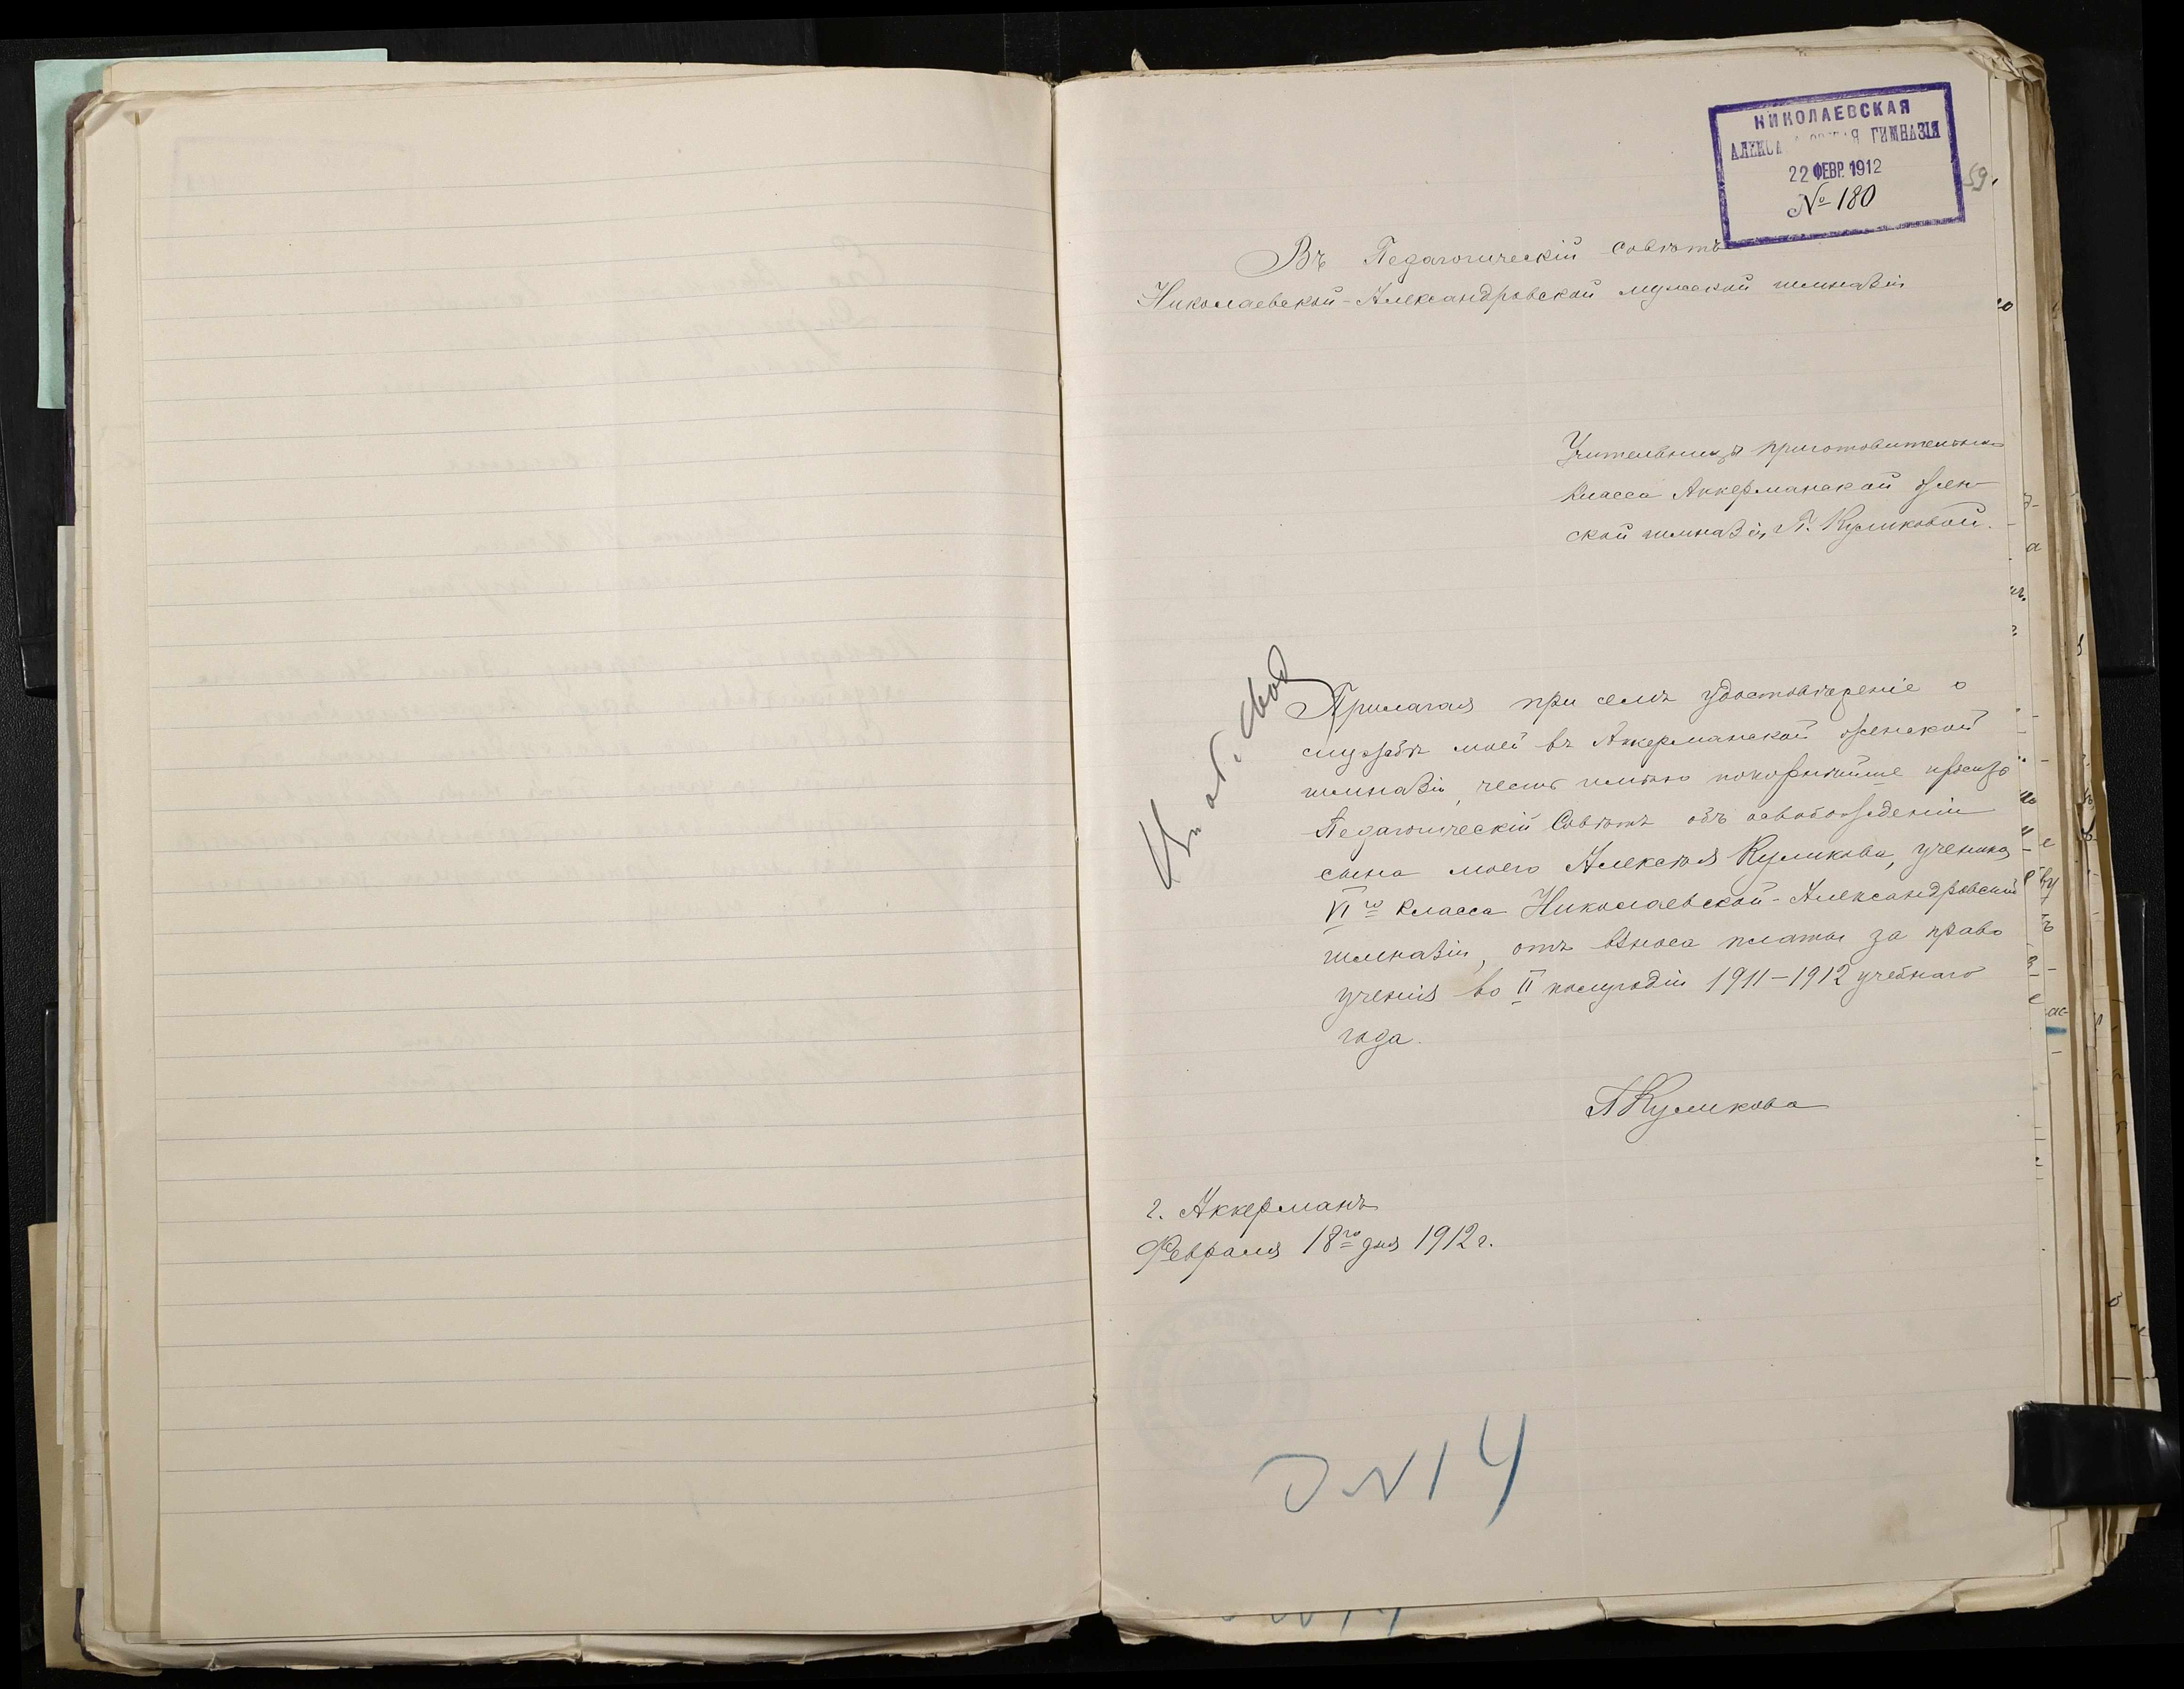 НИКОЛАЕВСКАЯ
ГИМНАЗІЯ
22 ФЕВР. 1912
№ 180
59
Въ Педагогическій Совѣтъ
Николаевской-Александровской мужской гимназіи
Учительницы приготовительнаго
класса Аккерманской жен-
ской гимназіи, П. Куликовой.
Прилагая при семъ удостовѣреніе о
службѣ моей въ Аккерманской женской
гимназіи, честь имѣю покорнѣйше просить
Педагогическій Совѣтъ объ освобожденіи
сына моего Алексѣя Куликова, ученика
VI го класса Николаевской-Александровской
гимназіи, отъ взноса платы за право
ученія во II полугодіи 1911-1912 учебнаго
года.
П Куликова
г. Аккерманъ
Февраля 18го дня 1912 г.
N 14